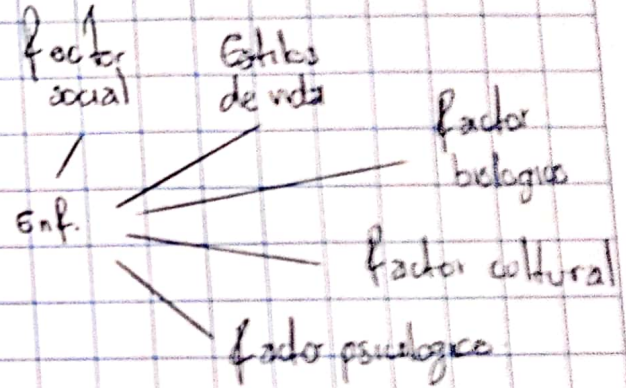 factor
social
Estilos
de vida
factor
biologico
Enf.
factor cultural
factor psicologico